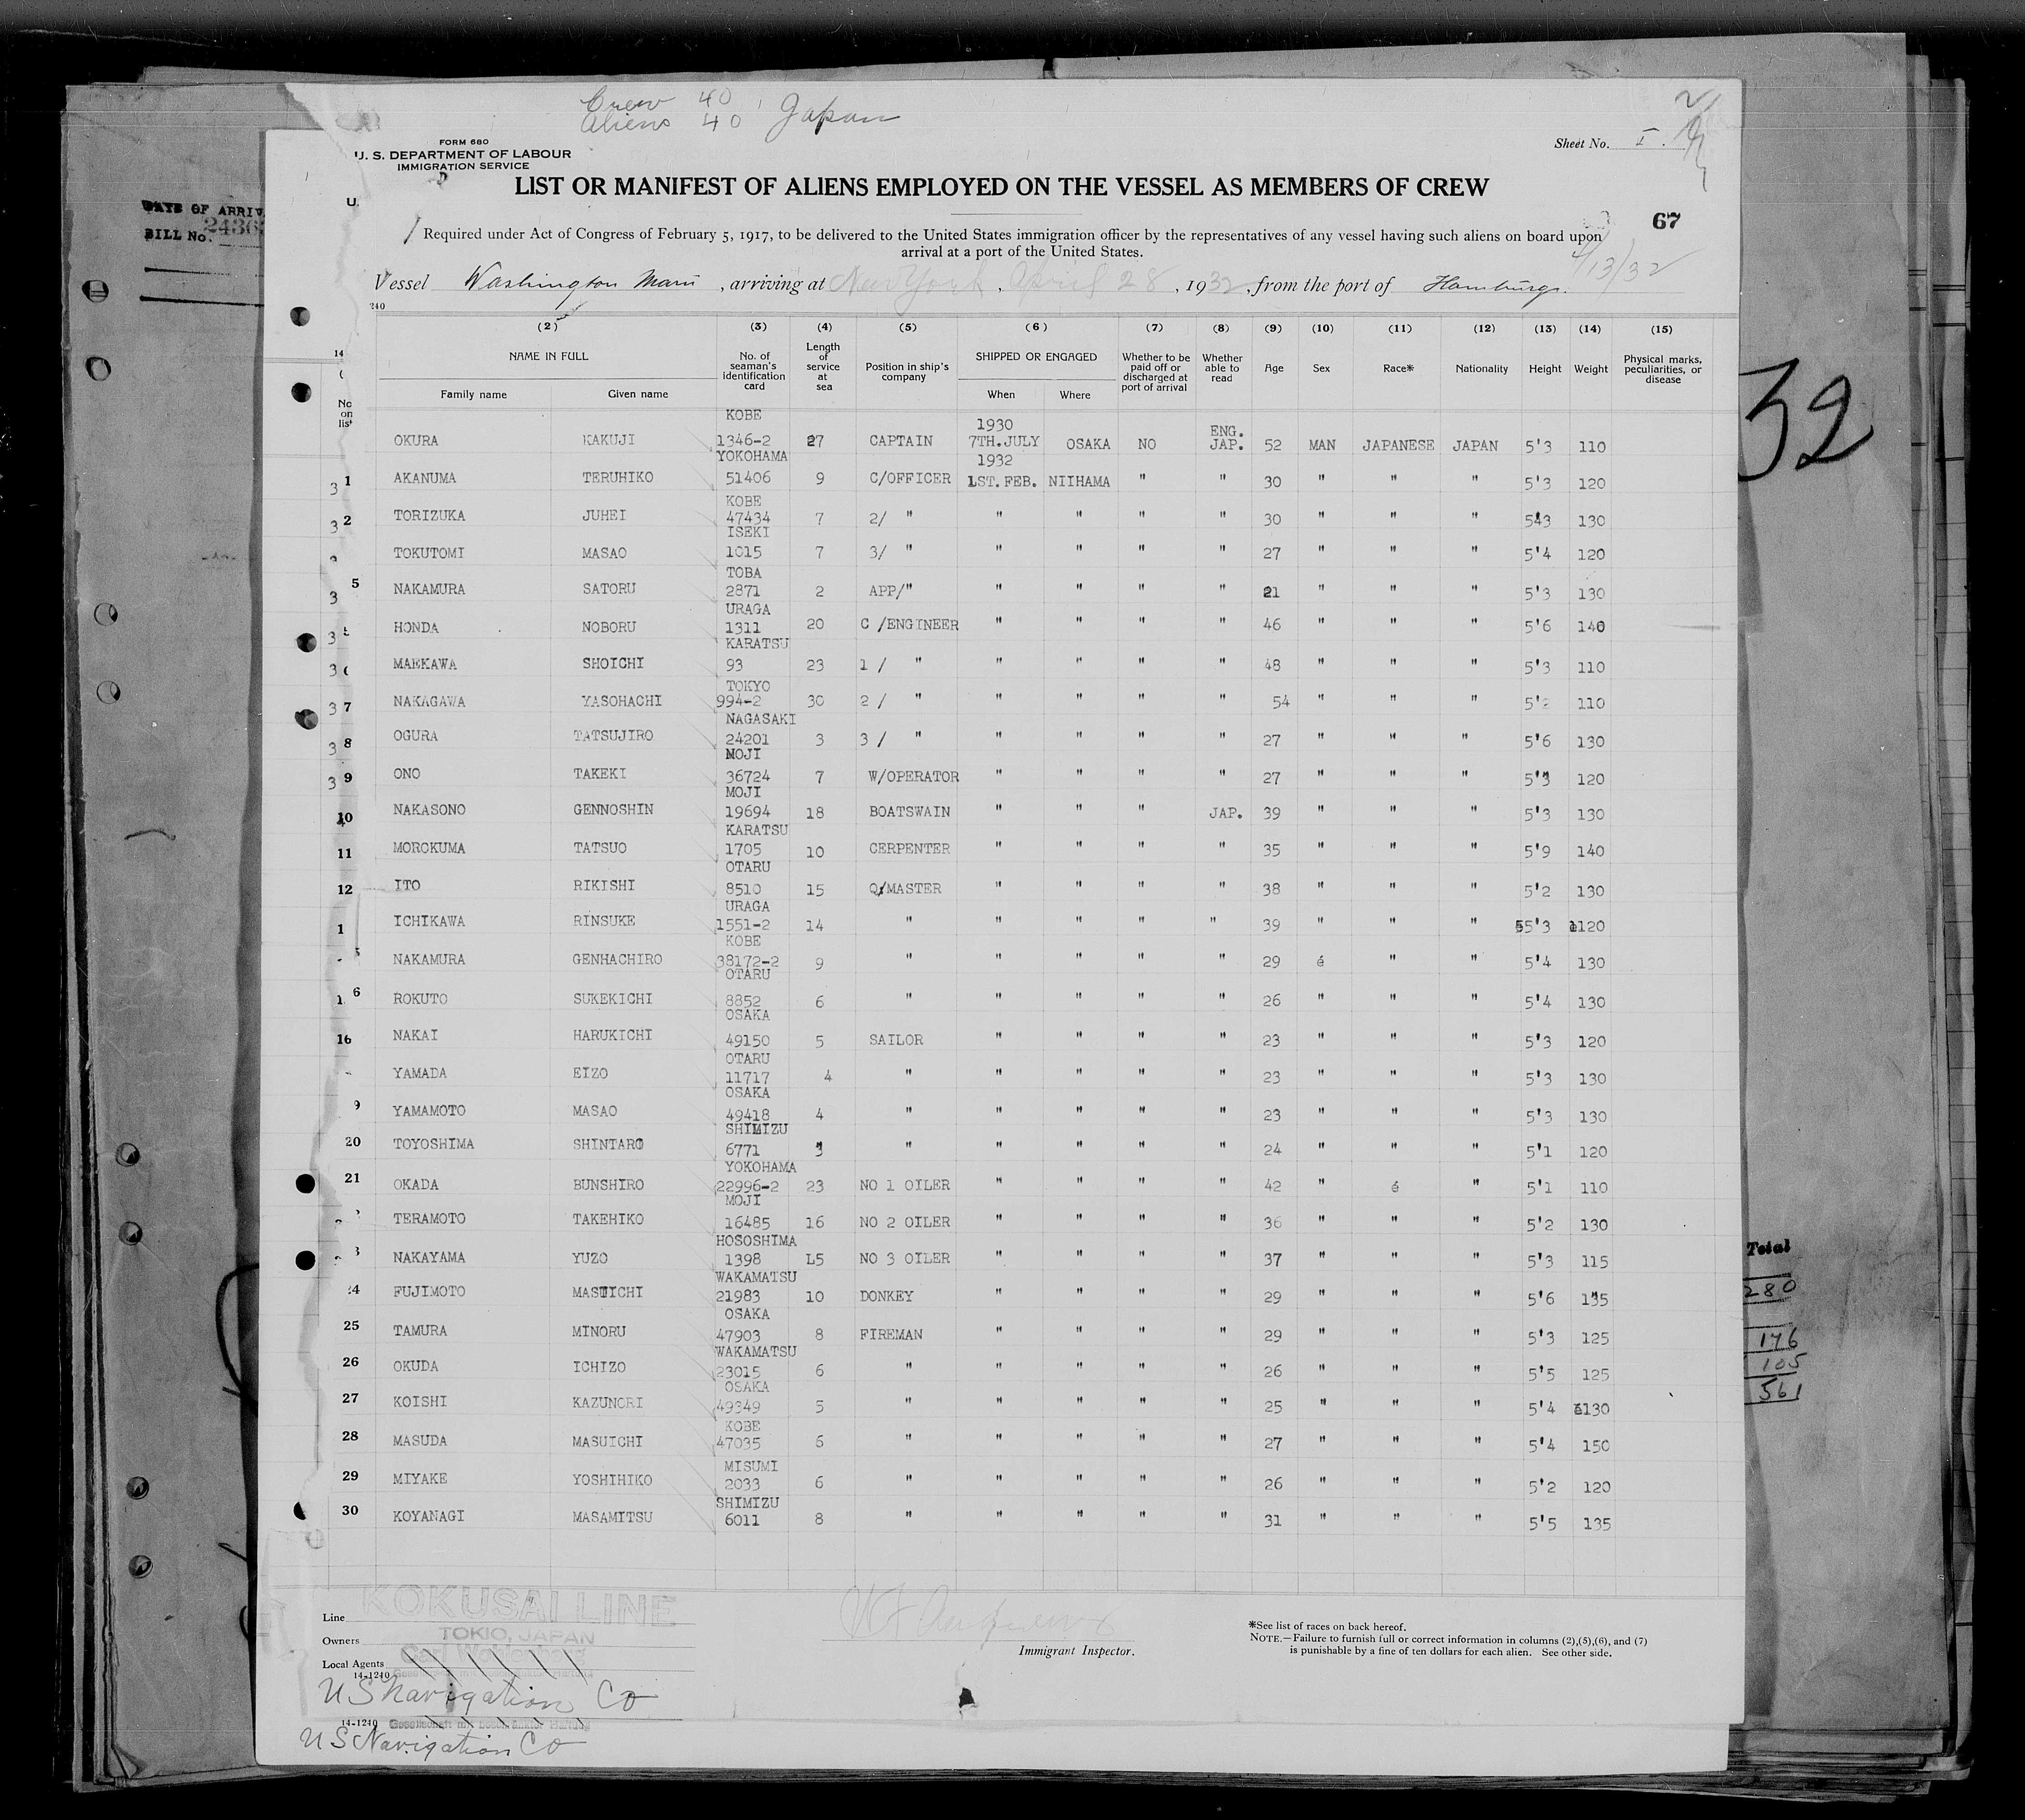 Crew 40 , Japan
Aliens 40
FORM 680
U. S. DEPARTMENT OF LABOUR
IMMIGRATION SERVICE
Sheet No. I.
LIST OR MANIFEST OF ALIENS EMPLOYED ON THE VESSEL AS MEMBERS OF CREW
U.
DATE OF ARRIV
BILL No.
67
Required under Act of Congress of February 5, 1917, to be delivered to the United States immigration officer by the representatives of any vessel having such aliens on board upon
arrival at a port of the United States.
4/13/32
Vessel Washington Maru , arriving at New York , April 28 , 1932, from the port of Hamburg.
240
(2) (3) (4) (5) (6) (7) (8) (9) (10) (11) (12) (13) (14) (15)
NAME IN FULL No. of seaman's identification card Length of service at sea Position in ship's company SHIPPED OR ENGAGED Whether to be paid off or discharged at port of arrival Whether able to read Age Sex Race* Nationality Height Weight Physical marks, peculiarities, or disease
Family name Given name When Where
14
No
on
list
KOBE 1930 ENG.
OKURA KAKUJI 1346-2 27 CAPTAIN 7TH.JULY OSAKA NO JAP. 52 MAN JAPANESE JAPAN 5'3 110
YOKOHAMA 1932
1 AKANUMA TERUHIKO 51406 9 C/OFFICER 1ST.FEB. NIIHAMA " " 30 " " " 5'3 120
KOBE
2 TORIZUKA JUHEI 47434 7 2/ " " " " " 30 " " " 543 130
ISEKI
TOKUTOMI MASAO 1015 7 3/ " " " " " 27 " " " 5'4 120
TOBA
5 NAKAMURA SATORU 2871 2 APP/" " " " " 21 " " " 5'3 130
URAGA
HONDA NOBORU 1311 20 C /ENGINEER " " " " 46 " " " 5'6 140
KARATSU
MAEKAWA SHOICHI 93 23 1 / " " " " " 48 " " " 5'3 110
TOKYO
7 NAKAGAWA YASOHACHI 994-2 30 2 / " " " " " 54 " " " 5'2 110
NAGASAKI
8 OGURA TATSUJIRO 24201 3 3 / " " " " " 27 " " " 5'6 130
MOJI
9 ONO TAKEKI 36724 7 W/OPERATOR " " " " 27 " " " 5'3 120
MOJI
10 NAKASONO GENNOSHIN 19694 18 BOATSWAIN " " " JAP. 39 " " " 5'3 130
KARATSU
11 MOROKUMA TATSUO 1705 10 CERPENTER " " " " 35 " " " 5'9 140
OTARU
12 ITO RIKISHI 8510 15 Q/MASTER " " " " 38 " " " 5'2 130
URAGA
1 ICHIKAWA RINSUKE 1551-2 14 " " " " " 39 " " " 5'3 120
KOBE
NAKAMURA GENHACHIRO 38172-2 9 " " " " " 29 " " " 5'4 130
OTARU
6 ROKUTO SUKEKICHI 8852 6 " " " " " 26 " " " 5'4 130
OSAKA
16 NAKAI HARUKICHI 49150 5 SAILOR " " " " 23 " " " 5'3 120
OTARU
YAMADA EIZO 11717 4 " " " " " 23 " " " 5'3 130
OSAKA
9 YAMAMOTO MASAO 49418 4 " " " " " 23 " " " 5'3 130
SHIMIZU
20 TOYOSHIMA SHINTARO 6771 3 " " " " " 24 " " " 5'1 120
YOKOHAMA
21 OKADA BUNSHIRO 22996-2 23 NO 1 OILER " " " " 42 " " 5'1 110
MOJI
TERAMOTO TAKEHIKO 16485 16 NO 2 OILER " " " " 36 " " " 5'2 130
HOSOSHIMA
3 NAKAYAMA YUZO 1398 L5 NO 3 OILER " " " " 37 " " " 5'3 115
WAKAMATSU
4 FUJIMOTO MASUICHI 21983 10 DONKEY " " " " 29 " " " 5'6 135
OSAKA
25 TAMURA MINORU 47903 8 FIREMAN " " " " 29 " " " 5'3 125
WAKAMATSU
26 OKUDA ICHIZO 23015 6 " " " " " 26 " " " 5'5 125
OSAKA
27 KOISHI KAZUNORI 49349 5 " " " " " 25 " " " 5'4 130
KOBE
28 MASUDA MASUICHI 47035 6 " " " " " 27 " " " 5'4 150
MISUMI
29 MIYAKE YOSHIHIKO 2033 6 " " " " " 26 " " " 5'2 120
SHIMIZU
30 KOYANAGI MASAMITSU 6011 8 " " " " " 31 " " " 5'5 135
32
Total
280
176
105
561
Line KOKUSAI LINE
Owners TOKIO, JAPAN
Local Agents
14-1240
US Navigation Co
Immigrant Inspector.
*See list of races on back hereof.
NOTE.—Failure to furnish full or correct information in columns (2),(5),(6), and (7)
is punishable by a fine of ten dollars for each alien. See other side.
14-1240
US Navigation Co